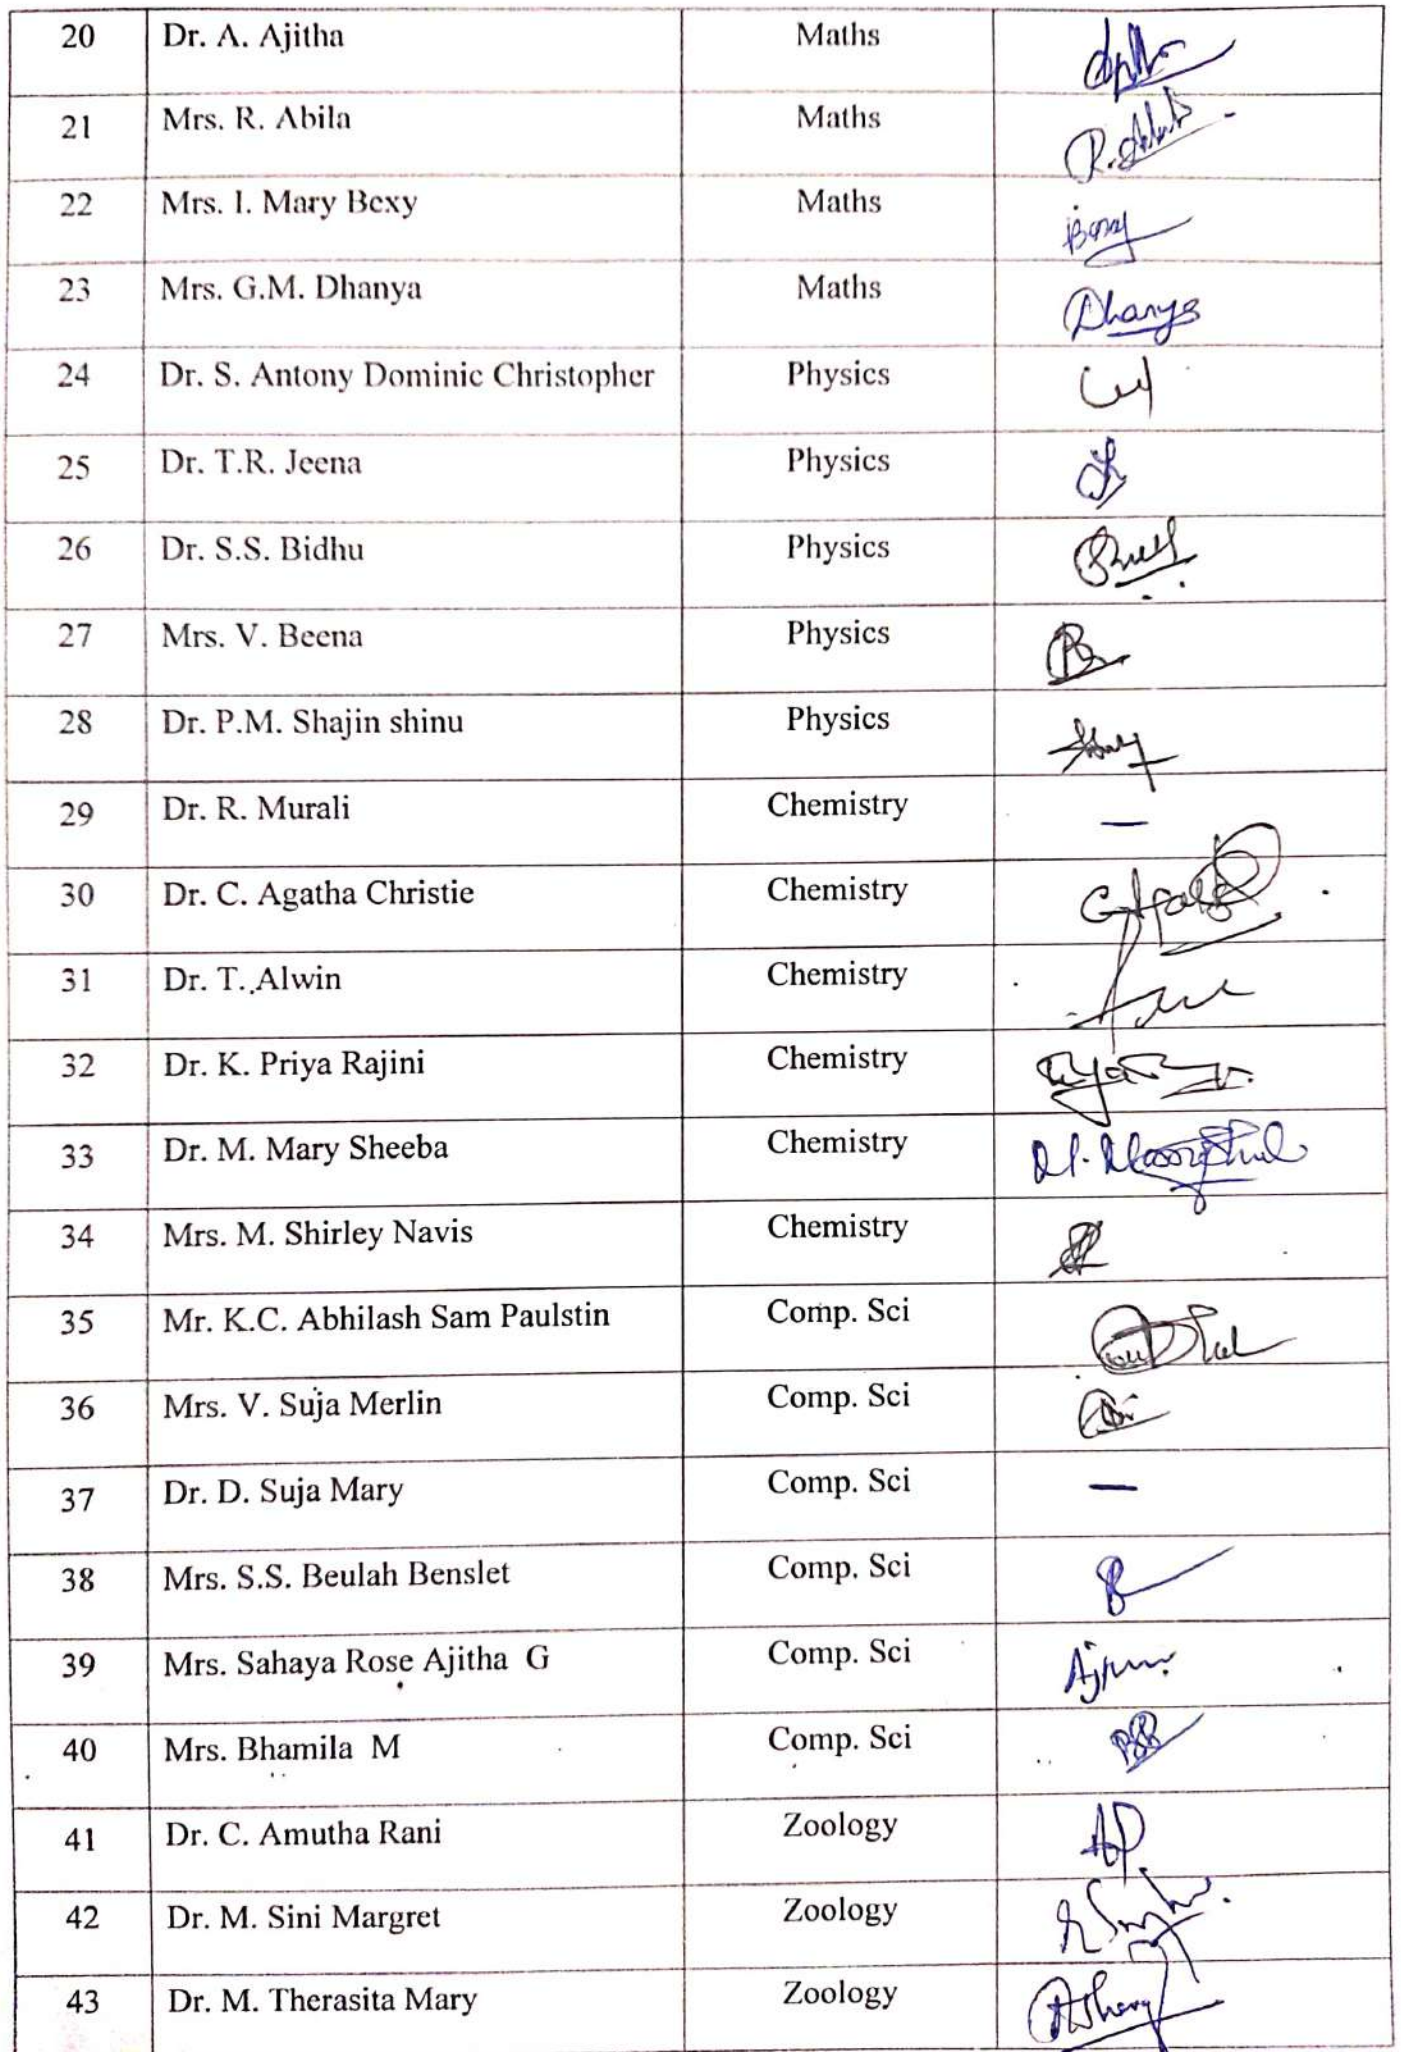 20 Dr. A. Ajitha Maths
21 Mrs. R. Abila Maths R.
22 Mrs. I. Mary Bexy Maths
23 Mrs. G.M. Dhanya Maths Dhanya
24 Dr. S. Antony Dominic Christopher Physics
25 Dr. T.R. Jeena Physics
26 Dr. S.S. Bidhu Physics
27 Mrs. V. Beena Physics
28 Dr. P.M. Shajin shinu Physics
29 Dr. R. Murali Chemistry —
30 Dr. C. Agatha Christie Chemistry
31 Dr. T. Alwin Chemistry
32 Dr. K. Priya Rajini Chemistry
33 Dr. M. Mary Sheeba Chemistry
34 Mrs. M. Shirley Navis Chemistry
35 Mr. K.C. Abhilash Sam Paulstin Comp. Sci
36 Mrs. V. Suja Merlin Comp. Sci
37 Dr. D. Suja Mary Comp. Sci —
38 Mrs. S.S. Beulah Benslet Comp. Sci
39 Mrs. Sahaya Rose Ajitha G Comp. Sci
40 Mrs. Bhamila M Comp. Sci
41 Dr. C. Amutha Rani Zoology
42 Dr. M. Sini Margret Zoology
43 Dr. M. Therasita Mary Zoology